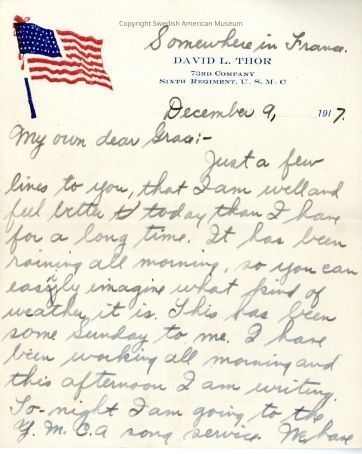 Copyright Swedish American Museum
Somewhere in France.
DAVID L. THOR
73RD COMPANY
SIXTH REGIMENT, U. S. M. C
December 9, 1917.
My own dear Grace:-
Just a few
lines to you, that I am well and
feel better to today than I have
for a long time. It has been
raining all morning, so you can
easily imagine what kind of
weather it is. This has been
some Sunday to me. I have
been working all morning and
this afternoon I am writing.
To-night I am going to the
Y.M.C.A song service. We have